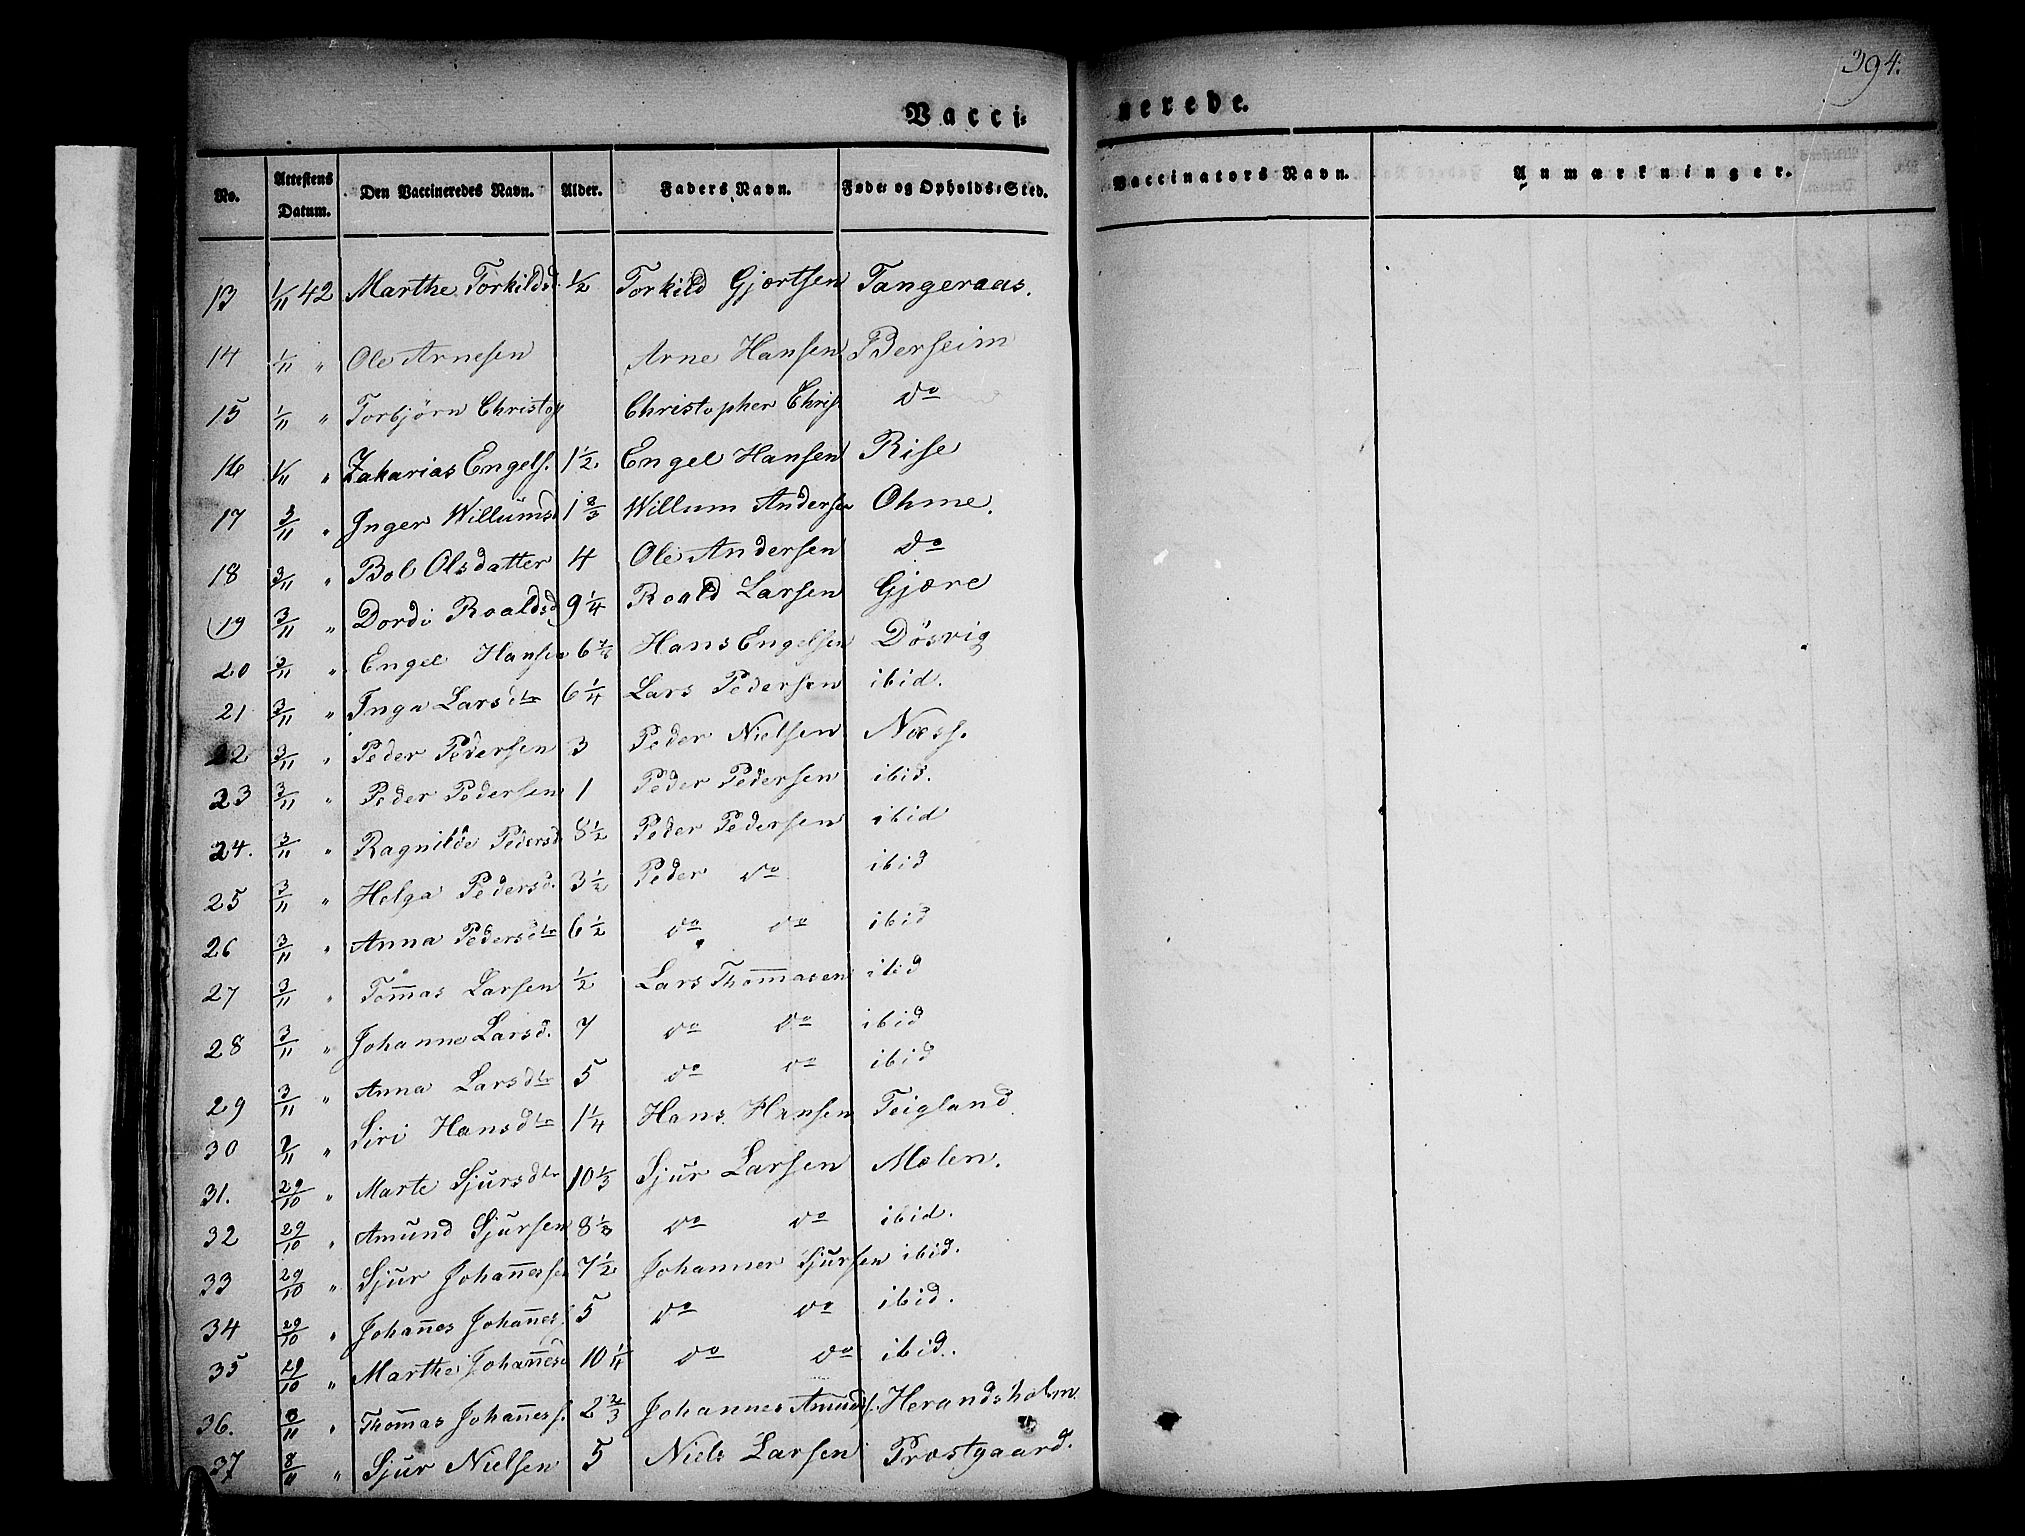 394.
Vacci-
nerede.
No. Attestens Datum. Den Vaccineredes Navn. Alder. Faders Navn. Føde- og Opholds-Sted.
Vaccinators Navn. Anmærkninger.
13 1/11 42 Marthe Torkildsd 1/2 Torkild Gjortsen Tangeraas.
14 1/11 " Ole Arnesen Arne Hansen Ederheim
15 1/11 " Torbjörn Christop Christopher Chris do
16 1/11 " Zakarias Engels. 1 1/2. Engel Hansen Rise
17 3/11 " Inger Willumsd 1 Willum Andersen Ohme.
18 3/11 " Bol Olsdatter 4 Ole Andersen do
19 3/11 " Dordi Roaldsd 9 1/4 Roald Larsen Gjære
20 3/11 " Engel Hansen 6 Hans Engelsen Dösvig
21 3/11 " Inga Larsdtr 6 1/4 Lars Pedersen ibid.
22 3/11 " Peder Pedersen 3 Peder Nielsen Næss.
23 3/11 " Peder Pedersen 1 Peder Pedersen ibid.
24. 3/11 " Ragnilde Pedersd 8 1/2 Peder Pedersen ibid
25 3/11 " Helga Pedersd. 3 1/2 Peder do ibid
26 3/11 " Anna Pedersdtr 6 1/2 do do ibid
27 3/11 " Tom̄as Larsen 1/2 Lars Thom̄asen ibid
28 3/11 " Johanne Larsd. 7 do do ibid
29 3/11 " Anna Larsdtr 5 do do ibid
30 /11 " Siri Hansdtr 1 1/4 Hans Hansen Teigland
31. 29/10 " Marte Sjursdtr 10 1/3 Sjur Larsen Melen.
32 29/10 " Amund Sjursen 8 1/3 do do ibid.
33 29/10 " Sjur Johan̄essen 7 1/2 Johannes Sjursen ibid.
34 29/10 " Johan̄es Johan̄es. 5 do do ibid.
35 29/10 " Marthe Johan̄esd 10 do do ibid.
36. 8/11 " Thom̄as Johan̄ess. 2 2/3 Johannes Amunds. Herandsholm
37 8/11 " Sjur Nielsen 5 Niels Larsen Præstgaard.